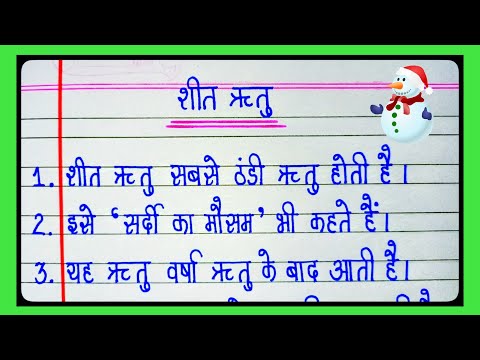 शीत ऋतु
1. शीत ऋतु सबसे ठंडी ऋतु होती है।
2. इसे ‘सर्दी का मौसम’ भी कहते हैं।
3. यह ऋतु वर्षा ऋतु के बाद आती है।